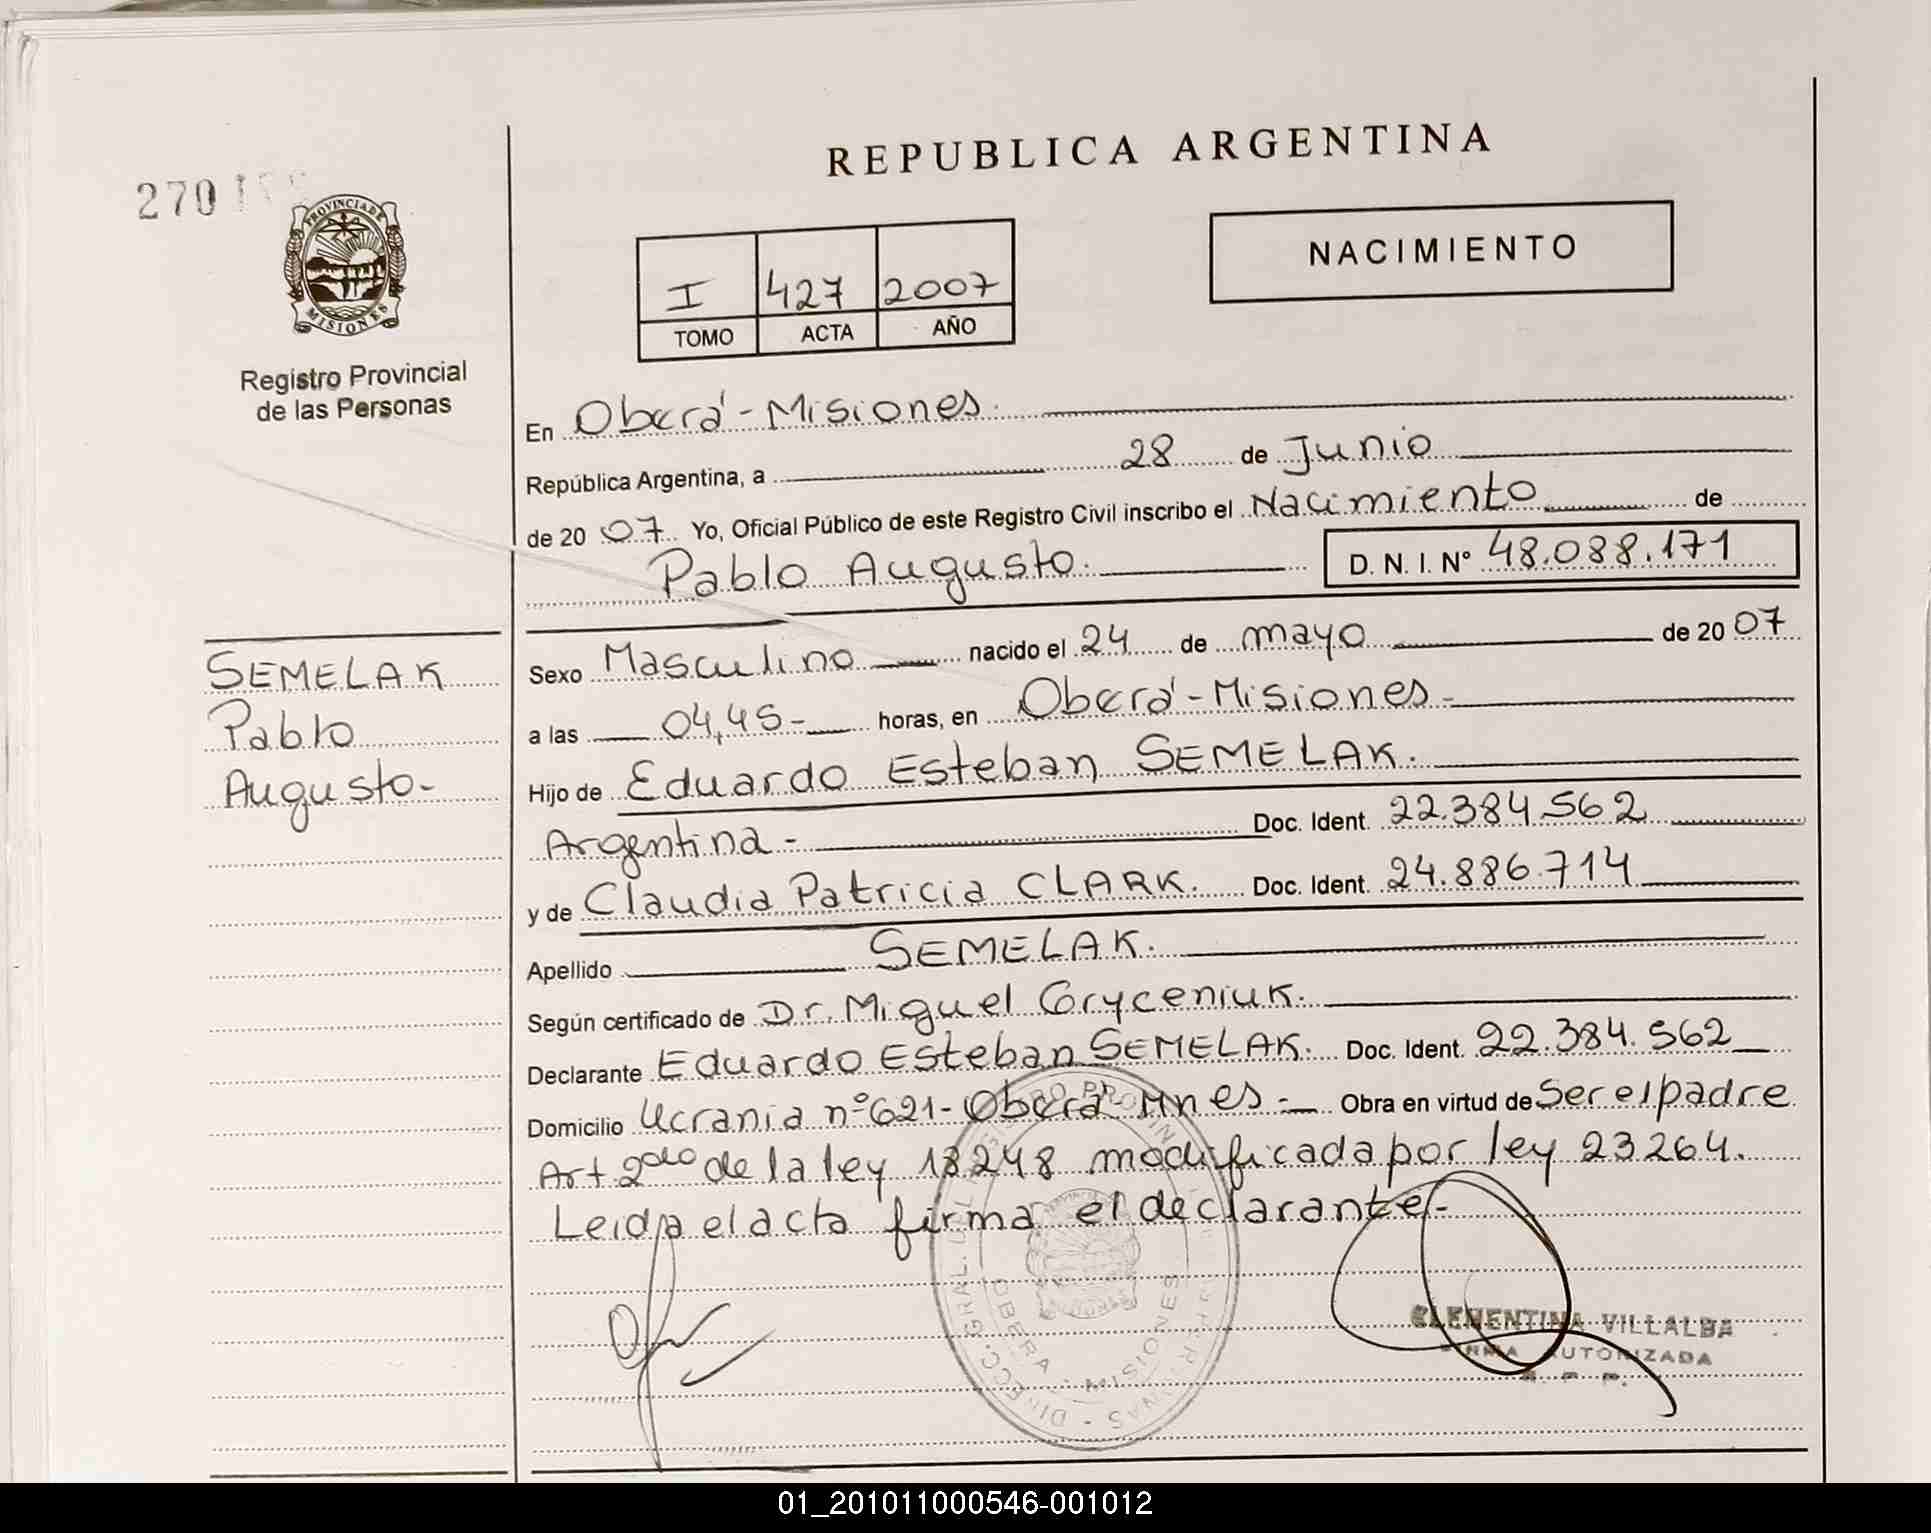 REPUBLICA ARGENTINA
270
PROVINCIA DE
MISIONES
Registro Provincial
de las Personas
I 427 2007
TOMO ACTA AÑO
NACIMIENTO
En Oberá - Misiones.
República Argentina, a 28 de Junio
de 20 07 Yo, Oficial Público de este Registro Civil inscribo el Nacimiento de
Pablo Augusto. D. N. I. Nº 48.088.171
SEMELAK
Pablo
Augusto-
Sexo Masculino nacido el 24 de mayo de 20 07
a las 04,45- horas, en Oberá - Misiones-
Hijo de Eduardo Esteban SEMELAK.
Argentina - Doc. Ident. 22.384.562
y de Claudia Patricia CLARK. Doc. Ident. 24.886.714
Apellido SEMELAK.
Según certificado de Dr. Miguel Gryceniuk.
Declarante Eduardo Esteban SEMELAK. Doc. Ident. 22.384.562
Domicilio Ucrania nº 621- Oberá- Mnes- Obra en virtud de Ser el padre
Art 2do de la ley 18248 modificada por ley 23264.
Leida el acta firma el declarante-
OBERA - MISIONES
CLEMENTINA VILLALBA
FIRMA AUTORIZADA
01_201011000546-001012